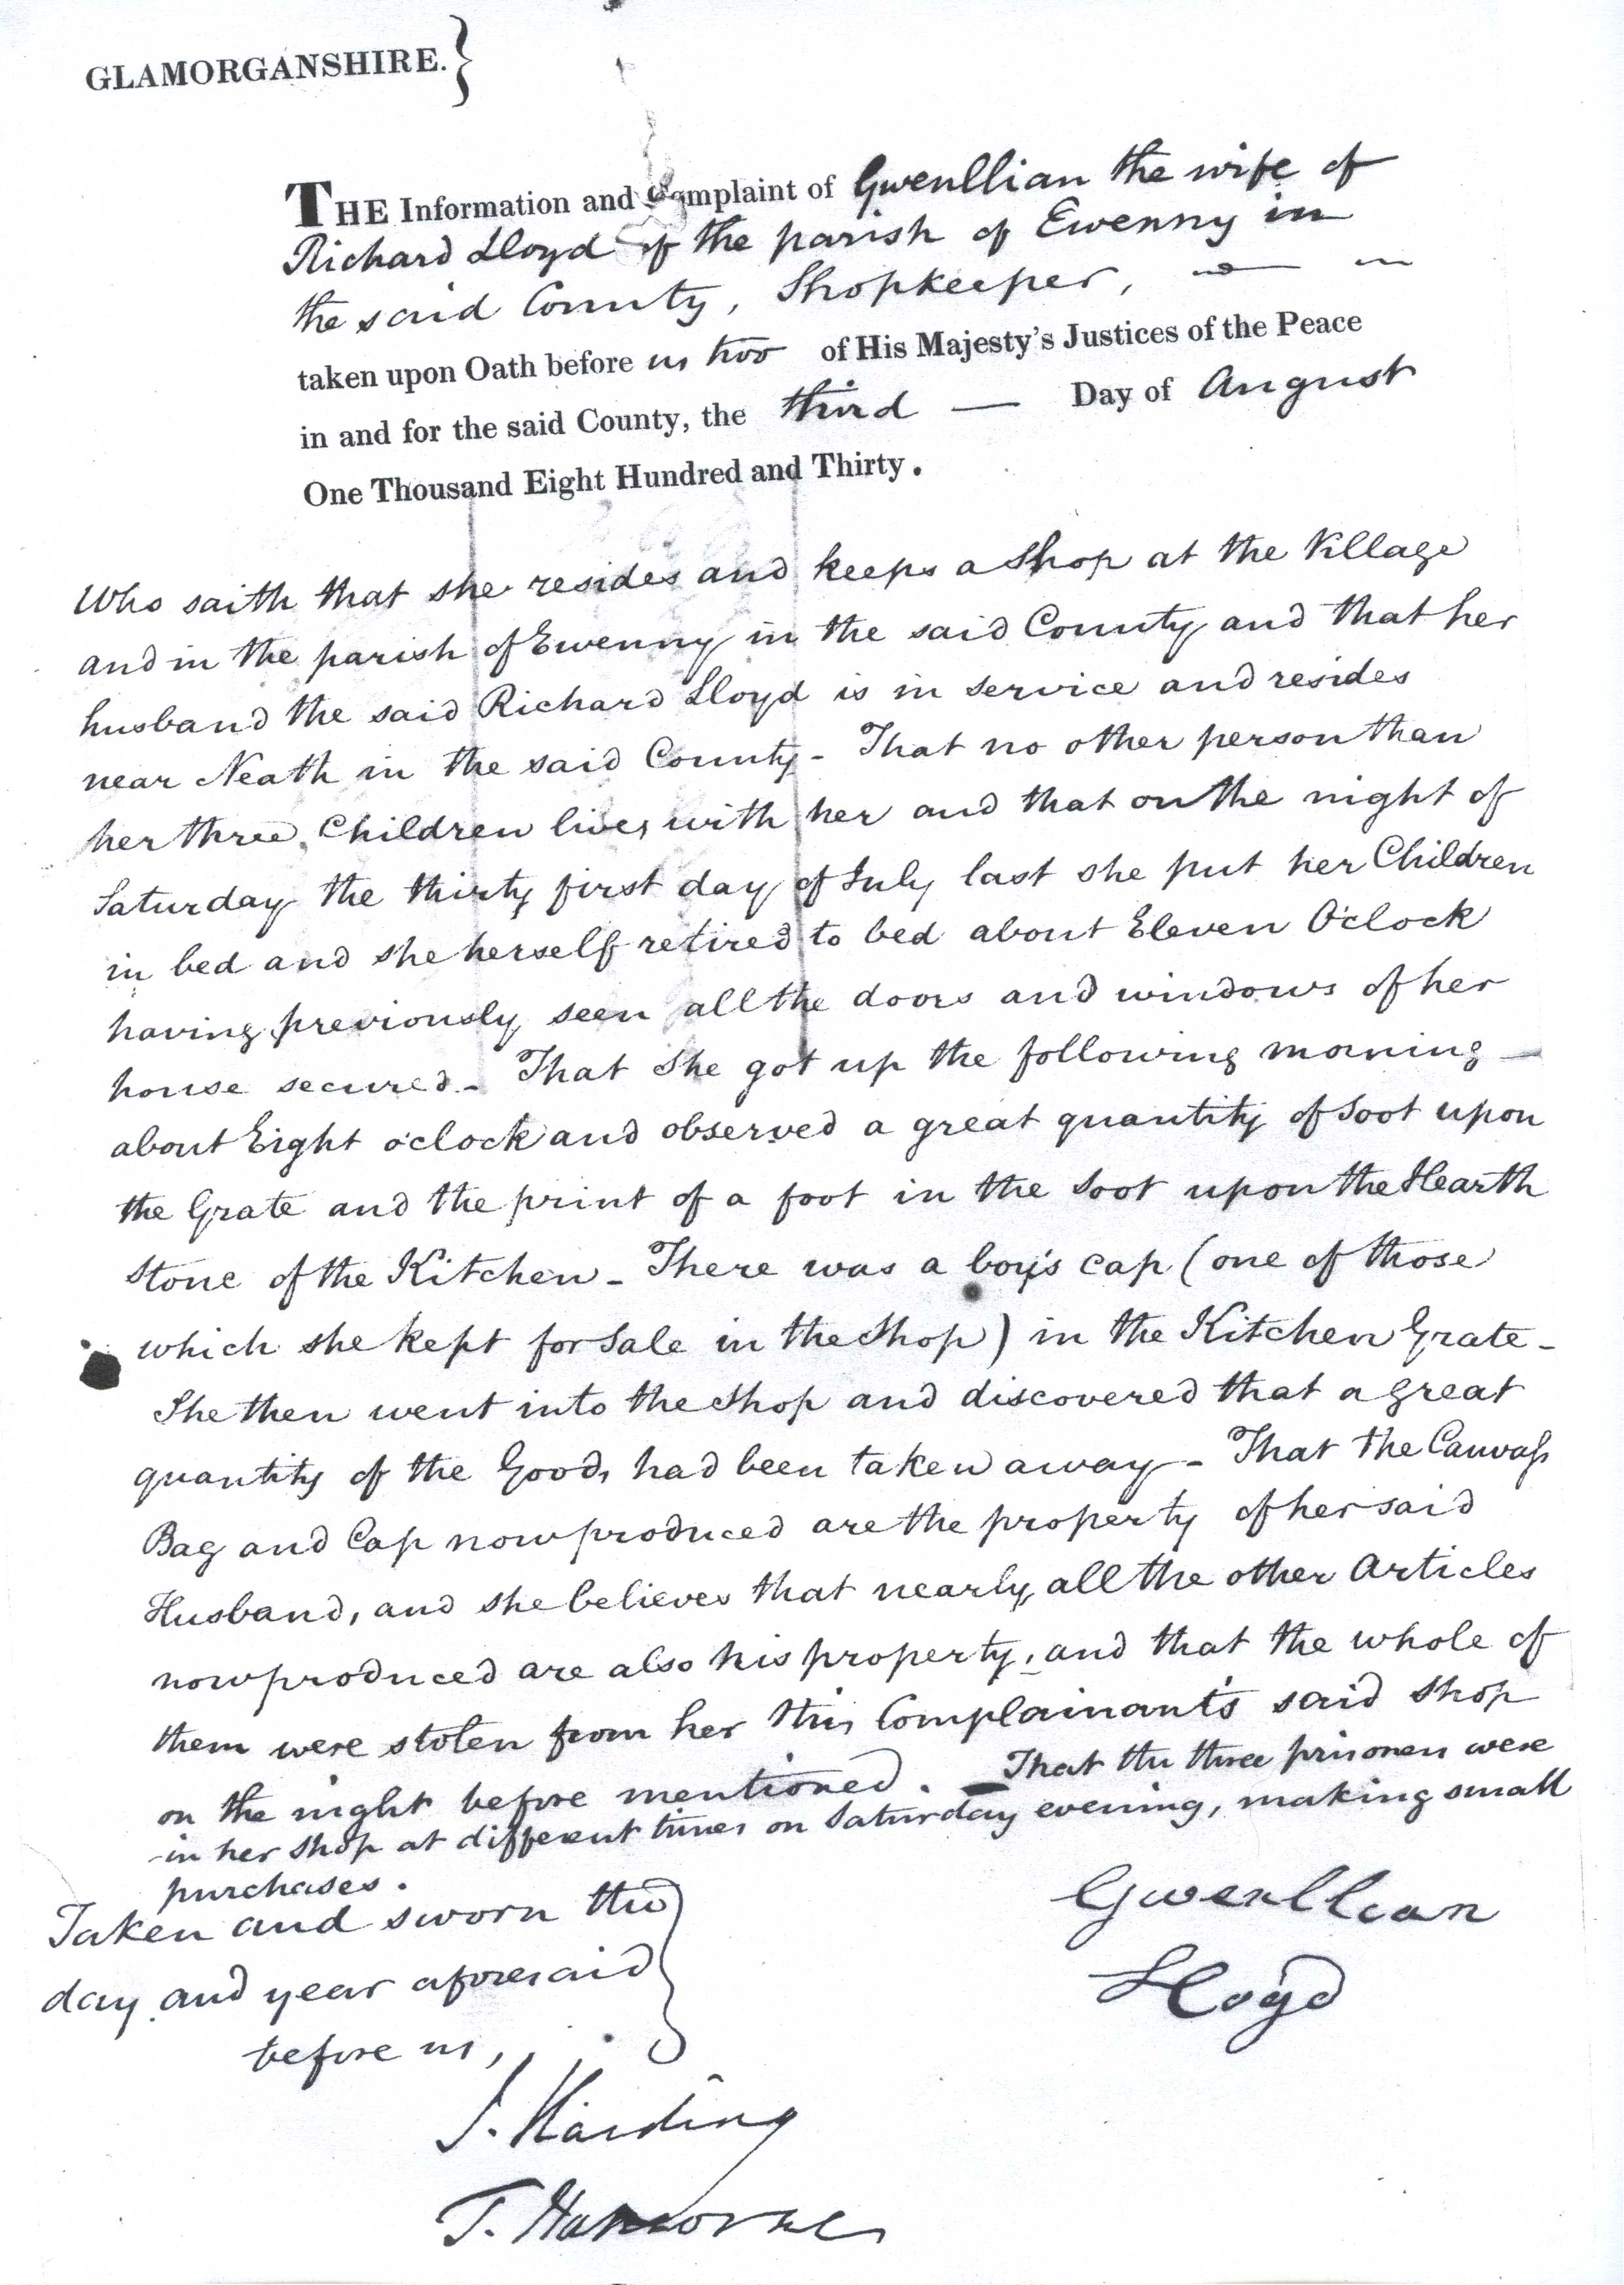 GLAMORGANSHIRE.}
THE Information and Complaint of Gwenllian the wife of
Richard Lloyd of the parish of Ewenny in
the said County, Shopkeeper,
taken upon Oath before us two of His Majesty's Justices of the Peace
in and for the said County, the third — Day of August
One Thousand Eight Hundred and Thirty.
Who saith that she resides and keeps a Shop at the Village
and in the parish of Ewenny in the said County and that her
husband the said Richard Lloyd is in service and resides
near Neath in the said County - That no other person than
her three Children lives with her and that on the night of
Saturday the thirty first day of July last she put her Children
in bed and she herself retired to bed about Eleven O'clock
having previously seen all the doors and windows of her
house secured - That She got up the following morning —
about Eight o'clock and observed a great quantity of Soot upon
the Grate and the print of a foot in the Soot upon the Hearth
Stone of the Kitchen - There was a boy's cap (one of those
which she kept for Sale in the Shop) in the Kitchen Grate -
She then went into the Shop and discovered that a great
quantity of the Goods had been taken away - That the Canvass
Bag and Cap now produced are the property of her said
Husband, and she believes that nearly all the other Articles
now produced are also his property, and that the whole of
them were stolen from her this Complainant's said Shop
on the night before mentioned. — That the three prisoners were
in her shop at different times on Saturday evening, making small
purchases.
Taken and sworn the }
day and year aforesaid
before us,
Gwenllian
Lloyd
J. Harding